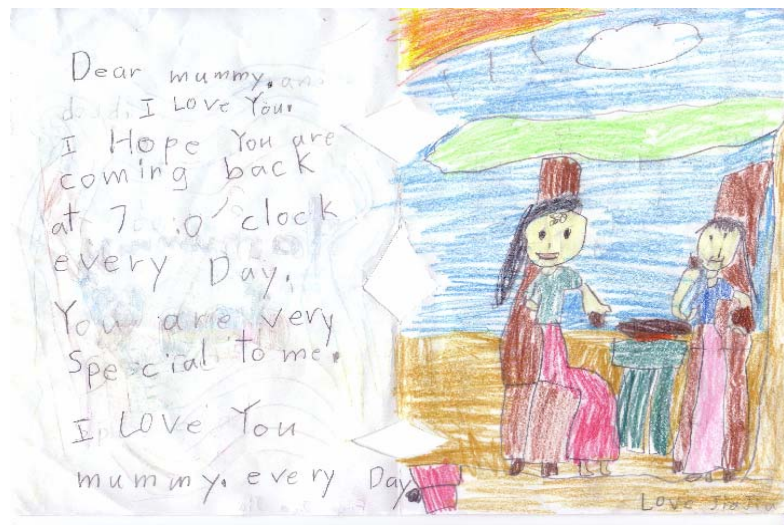 Dear mummy. and
dad. I Love You.
I Hope You are
coming back
at 7 :0' clock
every Day.
You are very
special to me.
I LOVE You
mummy. every Day
Love JiaJia